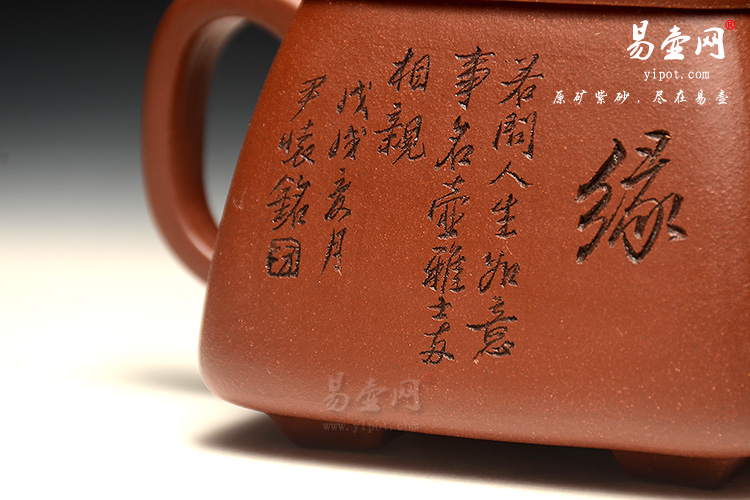 易壶网®
yipot.com
原矿紫砂,尽在易壶
缘
若問人生如意
事名壶雅士两
相親
戊戌夏月
尹 銘
易壶网
www.yipot.com